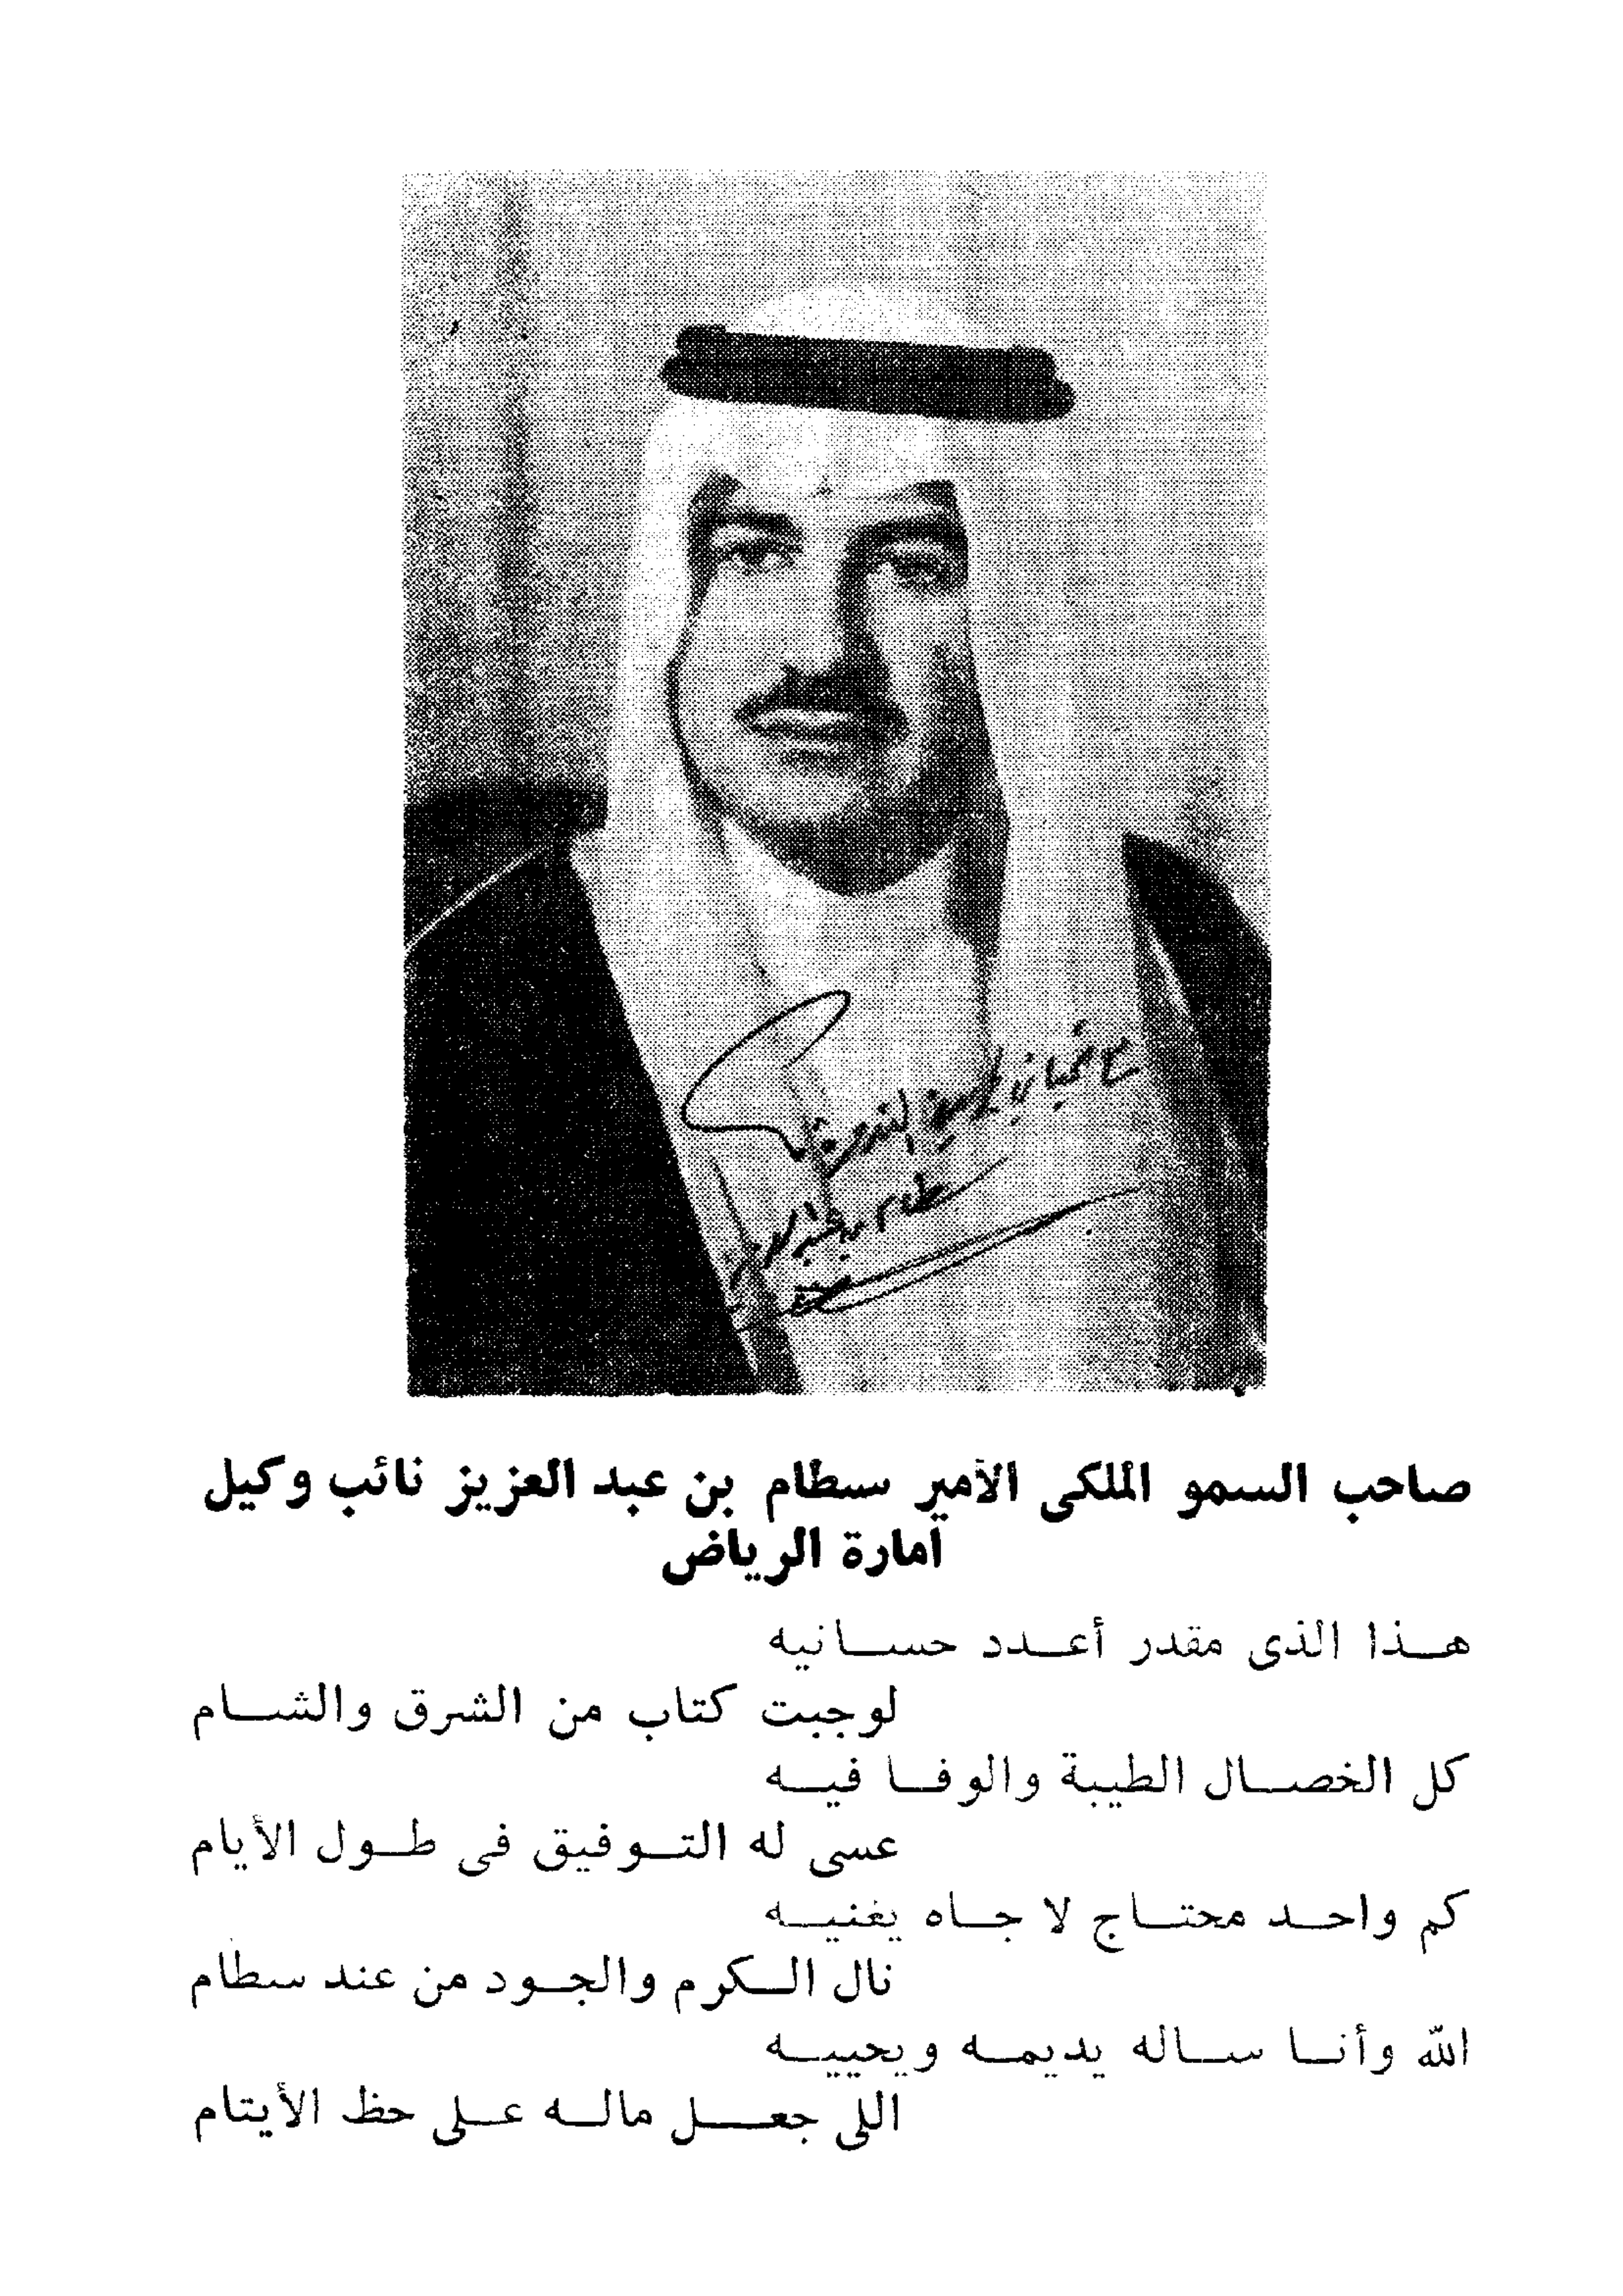 مع تحياتي
سطام بن عبد العزيز
صاحب السمو الملكى الأمير سطام بن عبد العزيز نائب وكيل
امارة الرياض
هـذا الذى مقدر أعـدد حسـانيه
لوجبت كتاب من الشرق والشـام
كل الخصـال الطيبة والوفـا فيـه
عسى له التـوفيق فى طـول الأيام
كم واحـد محتـاج لا جـاه يغنيـه
نال الـكرم والجـود من عند سطام
الله وأنـا سـاله يديمـه ويحييـه
اللى جعـل مالـه عـلى حظ الأيتام